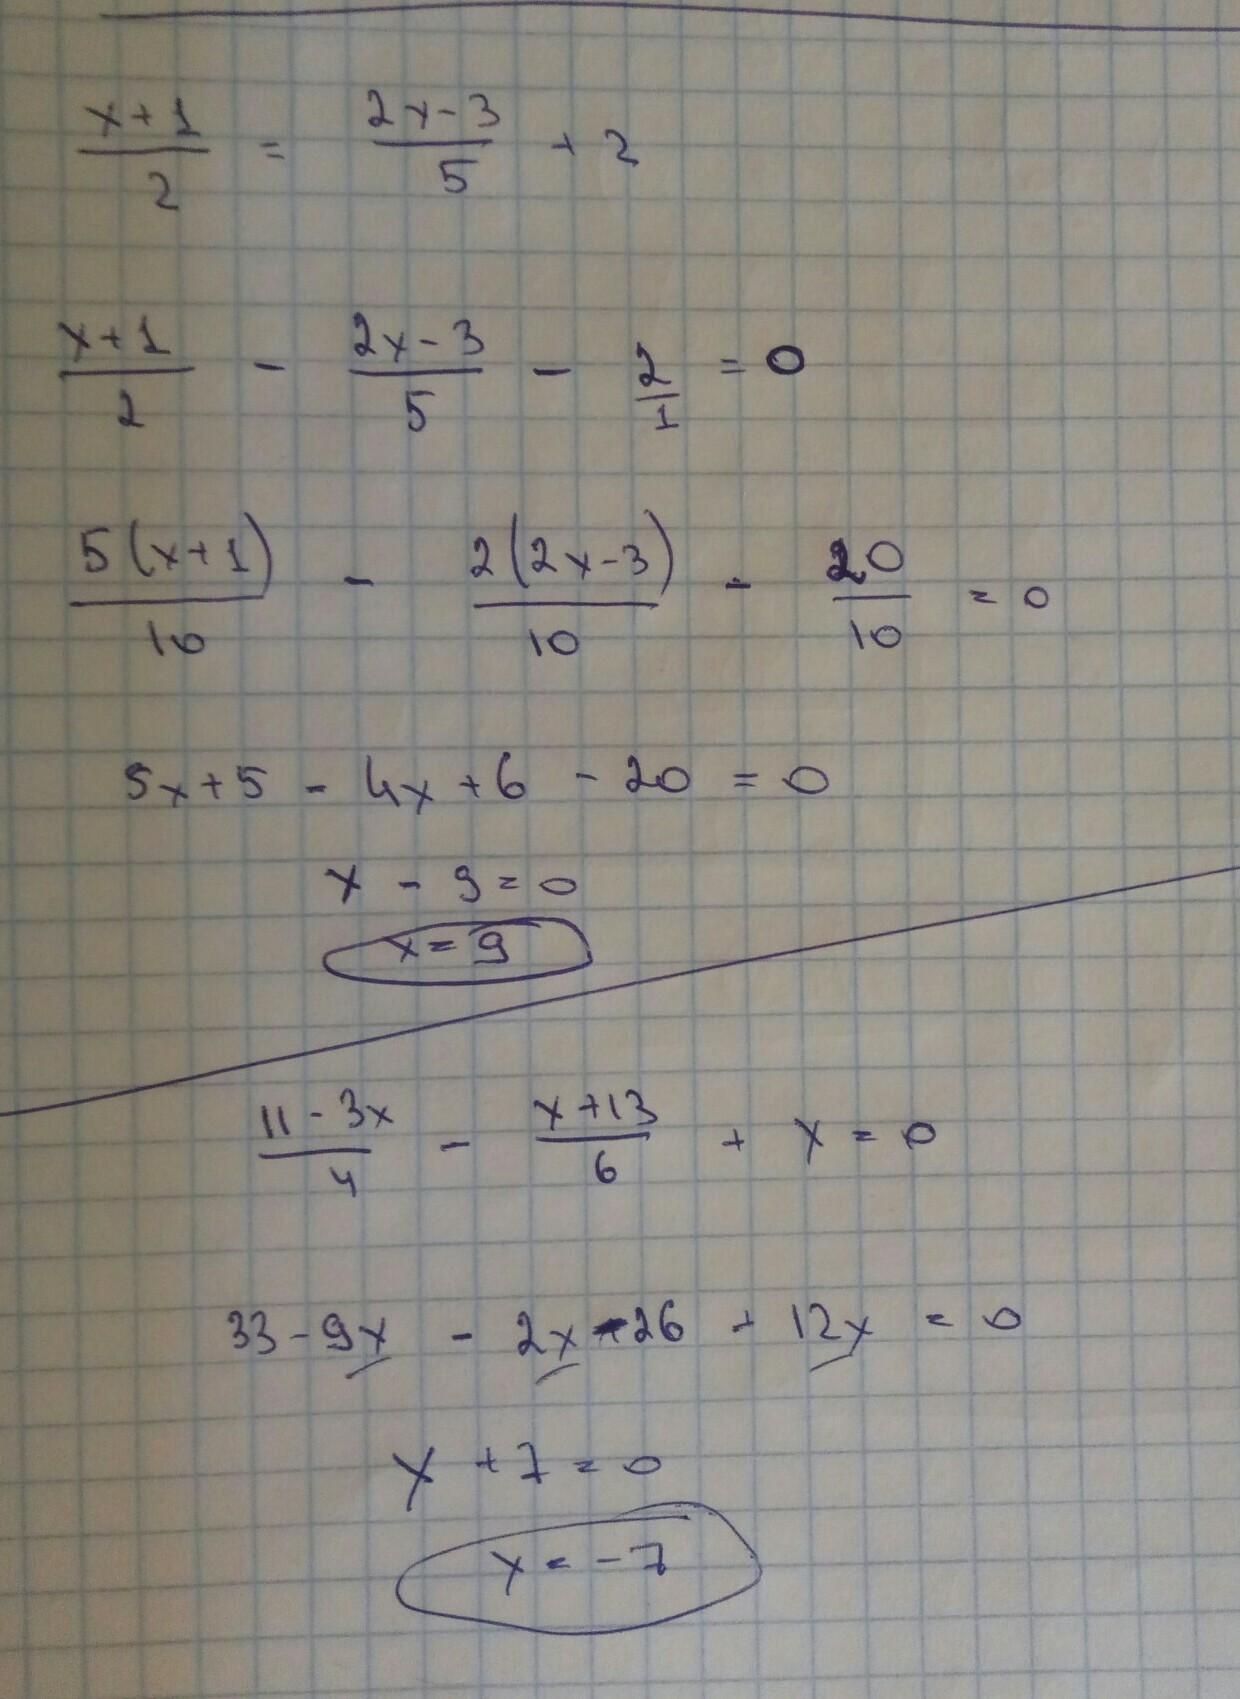 (x+1)/2 = (2x-3)/5 + 2
(x+1)/2 - (2x-3)/5 - 2/1 = 0
5(x+1)/10 - 2(2x-3)/10 - 20/10 = 0
5x+5 - 4x+6 - 20 = 0
x - 9 = 0
x = 9
(11-3x)/4 - (x+13)/6 + x = 0
33-9x - 2x-26 + 12x = 0
x + 7 = 0
x = -7